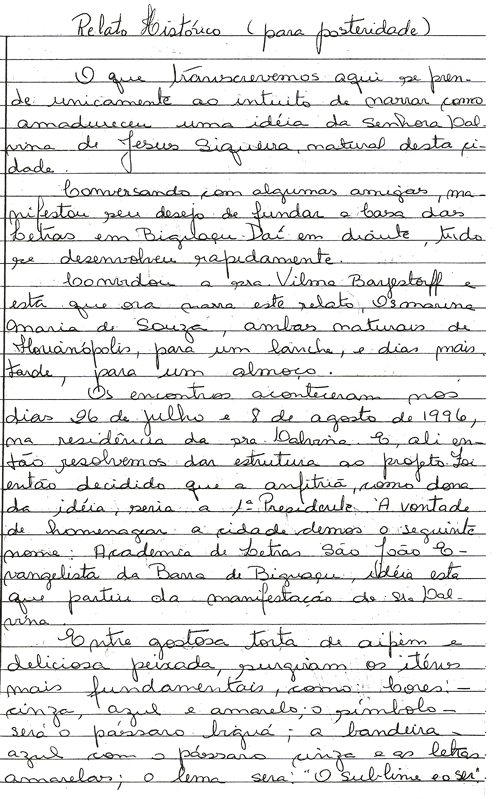 Relato Histórico (para posteridade)
O que transcrevemos aqui se pren-
de unicamente ao intuito de narrar como
amadureceu uma idéia da Senhora Dal-
vina de Jesus Siqueira, natural desta ci-
dade.
Conversando com algumas amigas, ma-
nifestou seu desejo de fundar a Casa das
Letras em Biguaçu Daí em diante, tudo
se desenvolveu rapidamente.
Convidou a sra. Vilma Bayestorff e
esta que ora narra este relato, Osmarina
Maria de Souza, ambas naturais de
Florianópolis, para um lanche, e dias mais
tarde, para um almoço.
Os encontros aconteceram nos
dias 26 de julho e 8 de agosto de 1996,
na residência da sra Dalvina. E, ali en-
tão resolvemos dar estrutura ao projeto. Foi
então decidido que a anfitriã, como dona
da idéia, seria a 1ª Presidente. A vontade
de homenagear a cidade demos o seguinte
nome: Academia de Letras São João E-
vangelista da Barra de Biguaçu, idéia esta
que partiu da manifestação de sra Dal-
vina.
Entre gostosa torta de aipim e
deliciosa peixada, surgiram os ítens
mais fundamentais, como: Cores: -
cinza, azul e amarelo; o símbolo -
será o pássaro biguá; a bandeira -
azul com o pássaro cinza e as letras
amarelas; o lema será: "O sublime é o ser"